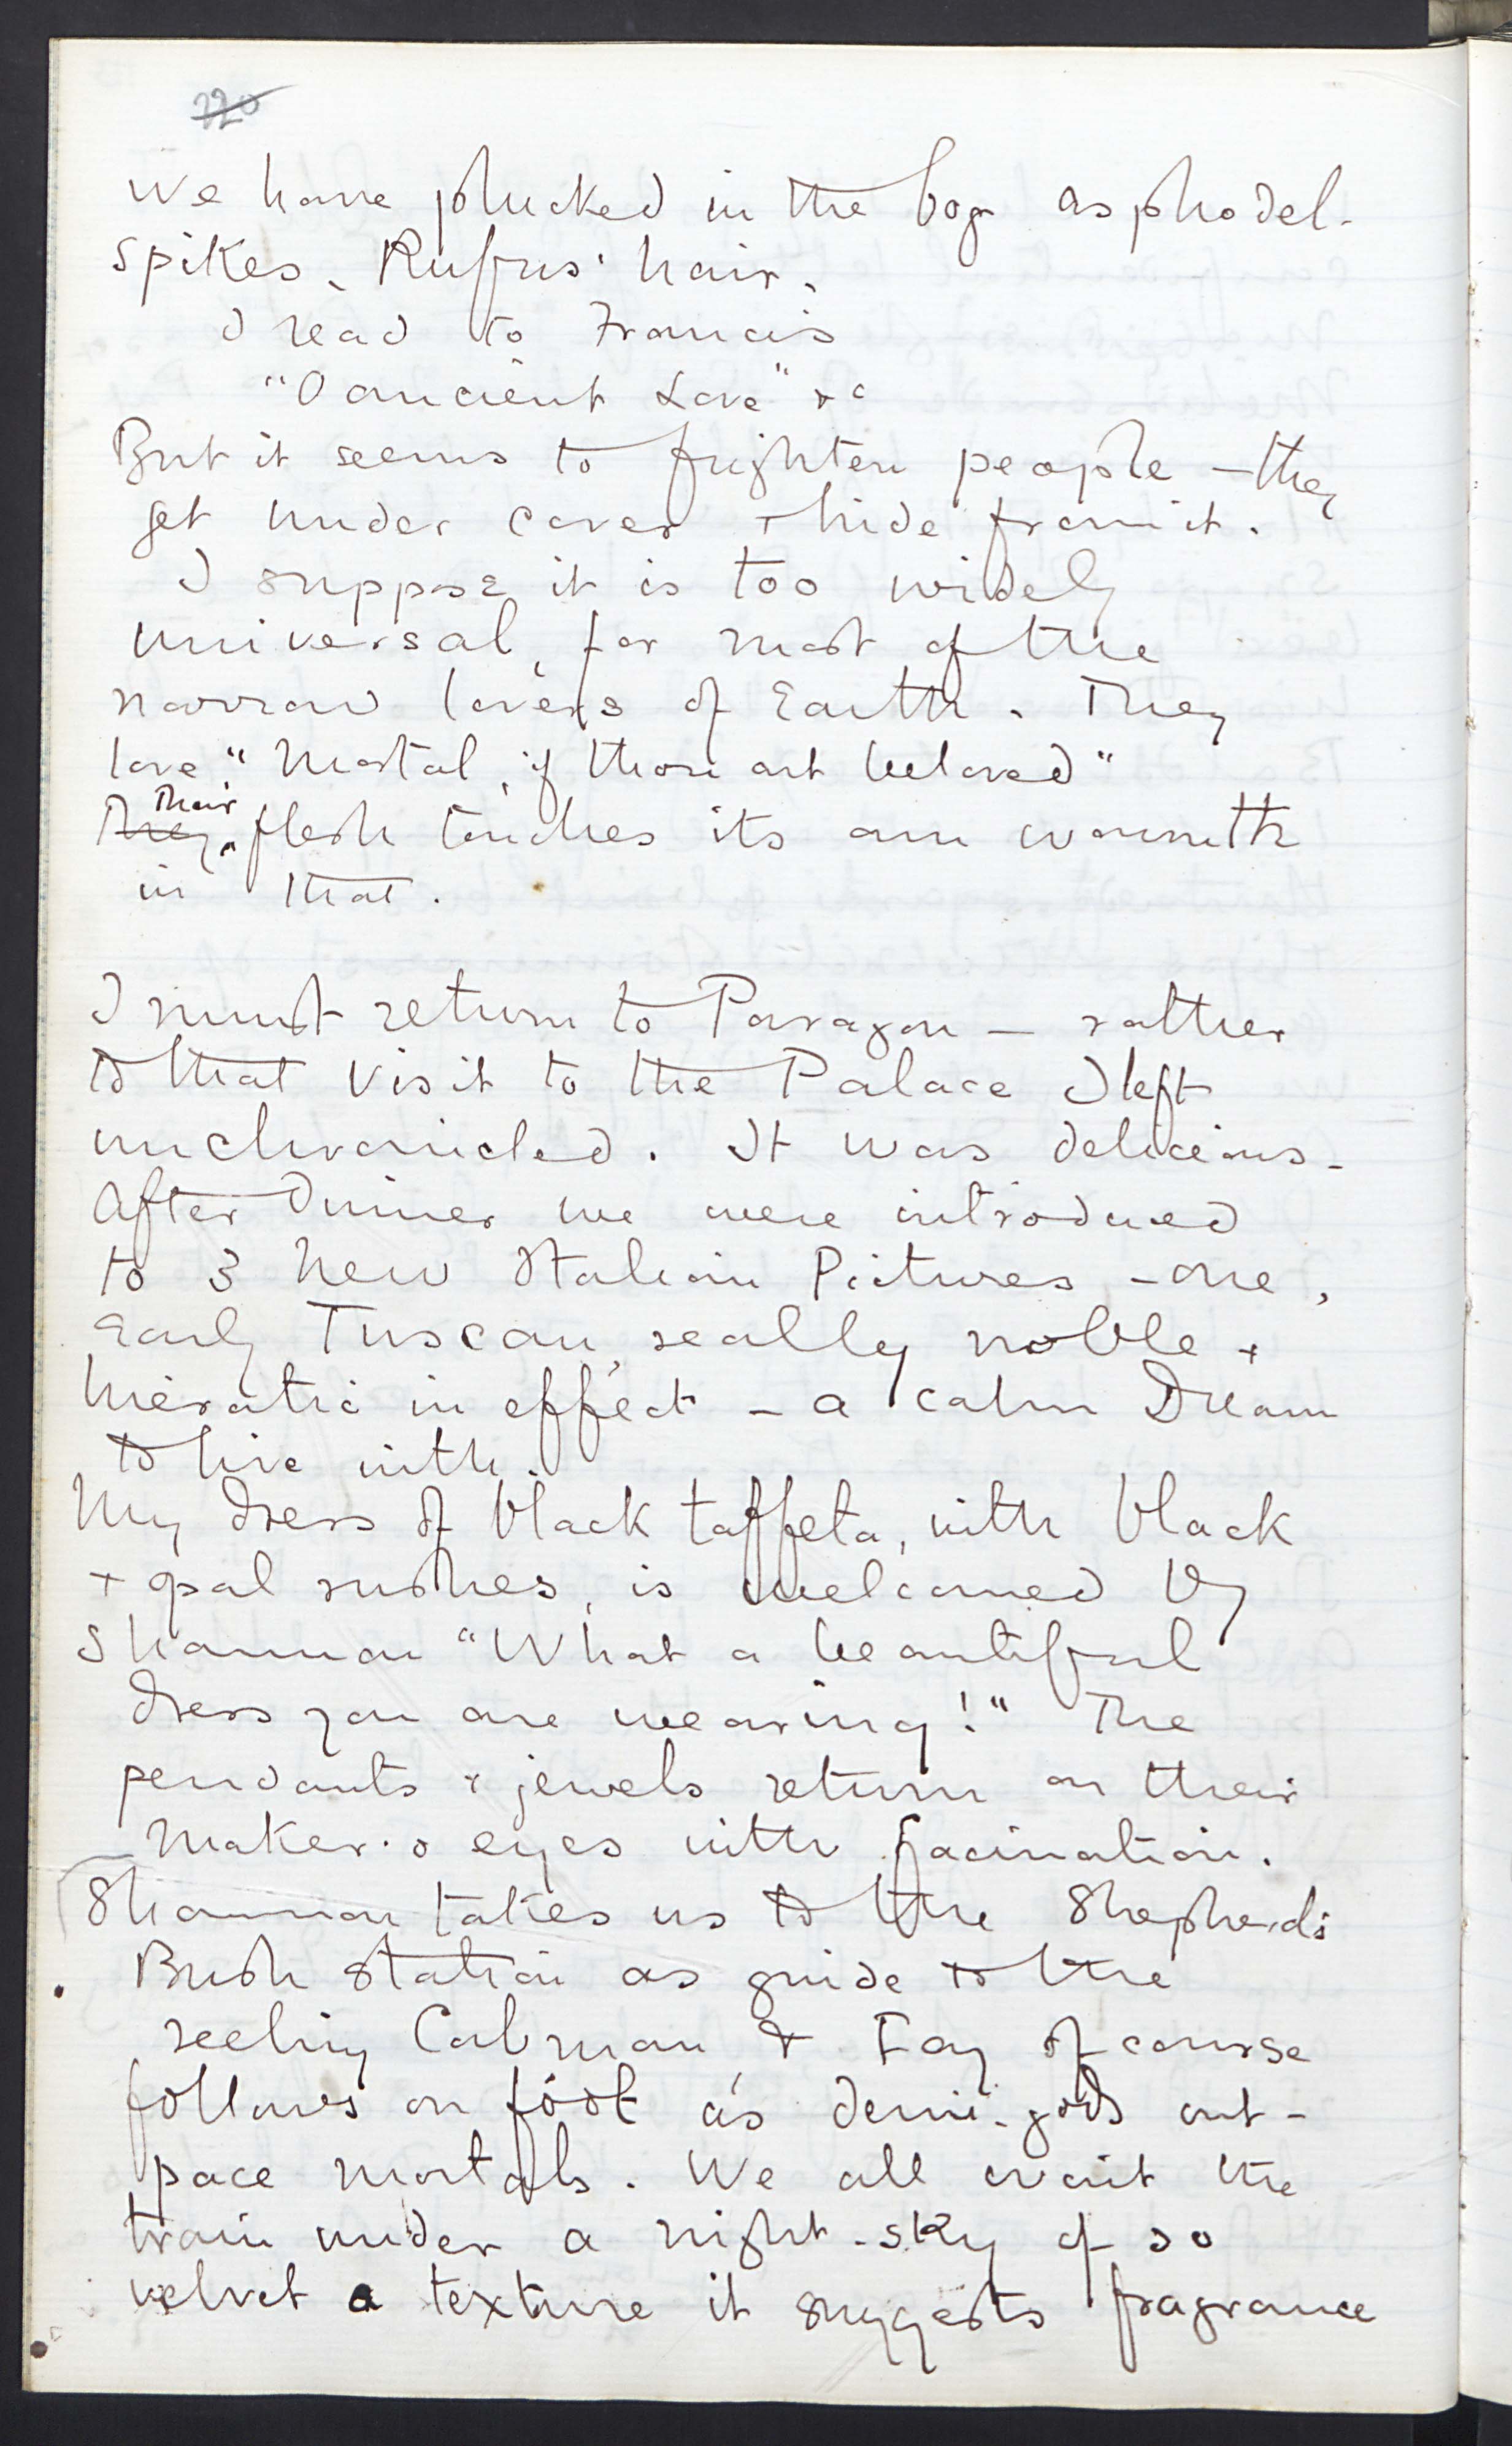 220
We have plucked in the bog asphodel-
spikes, Rufus' hair.
I read to Francis
"O ancient Love" &c
But it seems to frighten people – they
get under cover & hide from it.
I suppose it is too widely
universal, for most of the
narrow lovers of Earth. They
love "Mortal, if thou art beloved"
They Their flesh touches its own warmth
in that.
I must return to Paragon – rather
to that visit to the Palace I left
unchronicled. It was delicious –
After Dinner we were introduced
to 3 new Italian Pictures – one,
Early Tuscan, really noble &
hieratic in effect – a calm Dream
to live with.
My dress of black taffeta, with black
& opal ruches, is welcomed by
Shannon "What a beautiful
dress you are wearing!" The
pendants & jewels return on their
maker's eyes with facination.
Shannon takes us to the Shepherd's
Bush Station as guide to the
reeling Cabman & Fay of course
follows on foot as demi-gods out-
pace mortals. We all wait the
train under a night-sky of so
velvet a texture it suggests fragrance